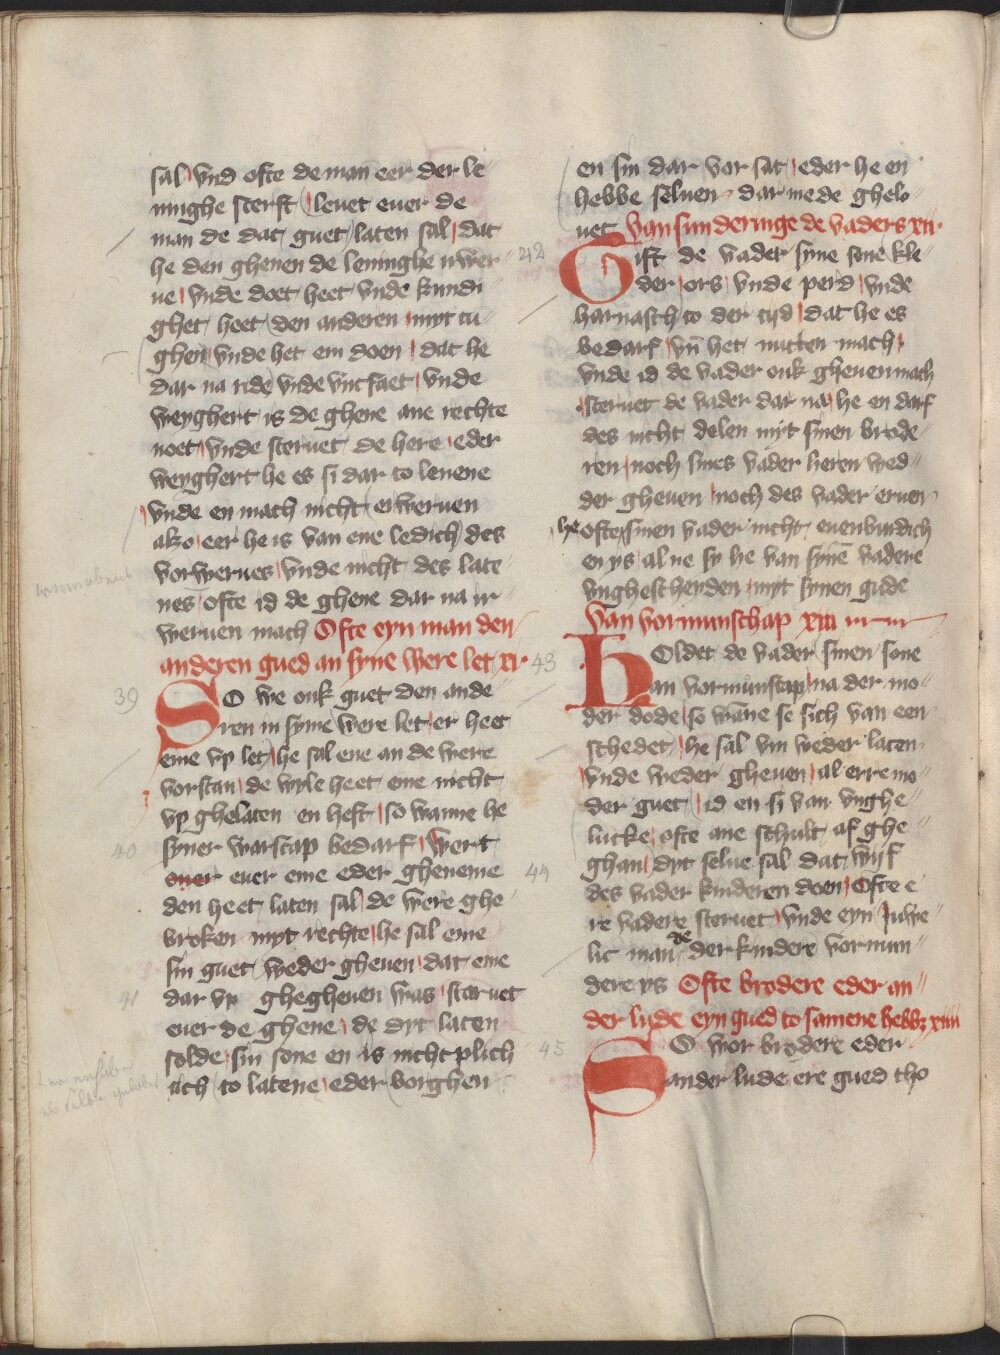 sal vnd ofte de man eer der le„
ninghe sterft leuet euer de
man de dat guet laten sal dat
he den ghenen de leninghe irwer„
ue vnde doet heet vnde kundi„
ghet heet den anderen myt tu„
ghen vnde het em doen dat he
dar na ride vnde vntfaet vnde
weyghert is de ghene ane rechte
noet vnde steruet de here eder
weyghert he es si dar to lenene
vnde en mach nicht erweruen
also eer he is van ene ledich des
vorwerues vnde nicht des late„
nes ofte id de ghene dar na ir„
weruen mach Ofte eyn man den
anderen gued an syne were let xi.
39
SO we ouk guet den ande„
ren in syme were let er heet
eme vp let he sal ene an de were
vorstan de wyle heet eme nicht
vp ghelaten en heft so wanne he
40
syner warscap bedarf wert
ouer euer eme eder gheneme
den heet laten sal de were ghe„
broken myt rechte he sal eme
sin guet weder gheuen dat eme
41
dar vp ghegheuen was steruet
euer de ghene de dyt laten
solde sin sone en is nicht plich„
tich to latene eder borghen
en sin dar vor sat eder he en
hebbe seluen dar mede ghelo„
uet Van sunderinge de vaders xii.
42
Gift de vader syne sone kle„
der ors vnde perd vnde
harnasch to der tyd dat he es
bedarf vn̄ het nutten mach
vnde id de vader ouk gheuen mach
steruet de vader dar na he en darf
des nicht delen myt sinen brode„
ren noch sines vader heren wed„
der gheuen noch des vader eruen
he ofte sinen vader nicht euenburdich
en ys al ne sy he van synē vadere
vnghescheyden myt synen gude
Van vormunschap xiii
43
Holdet de vader sinen sone
an vormunscap na der mo„
der dode so wāne se sich van een
schedet he sal vm weder laten
vnde weder gheuen al erre mo„
der guet id en si van vnghe„
lucke ofte ane schult af ghe„
ghan dyt selue sal dat wyf
44
des vader kinderen doen Ofte e„
re vadere steruet vnde eyn Juwe„
lic man de der kindere vormun„
dere ys Ofte brodere eder an„
der lude eyn gued to samene hebbz xiiii
45
SO wor brodere eder
ander lude ere gued tho